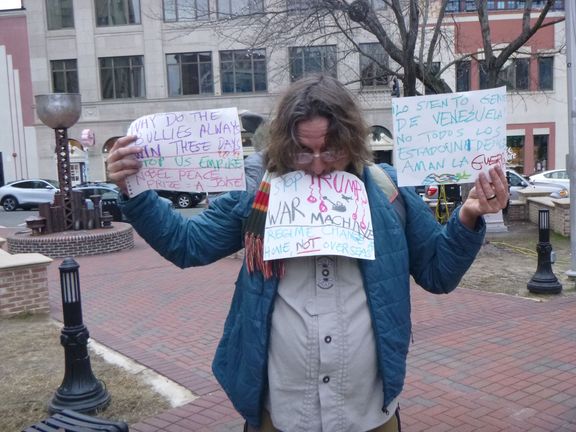 WHY DO THE
BULLIES ALWAYS
WIN THESE DAYS
STOP US EMPIRE
NOBEL PEACE
PRIZE A JOKE
STOP TRUMP
WAR MACHINE
REGIME CHANGE
HOME, NOT OVERSEAS
LO SIENTO, GENTE
DE VENEZUELA
NO TODOS LOS
ESTADOUNIDENSES
AMAN LA GUERRA